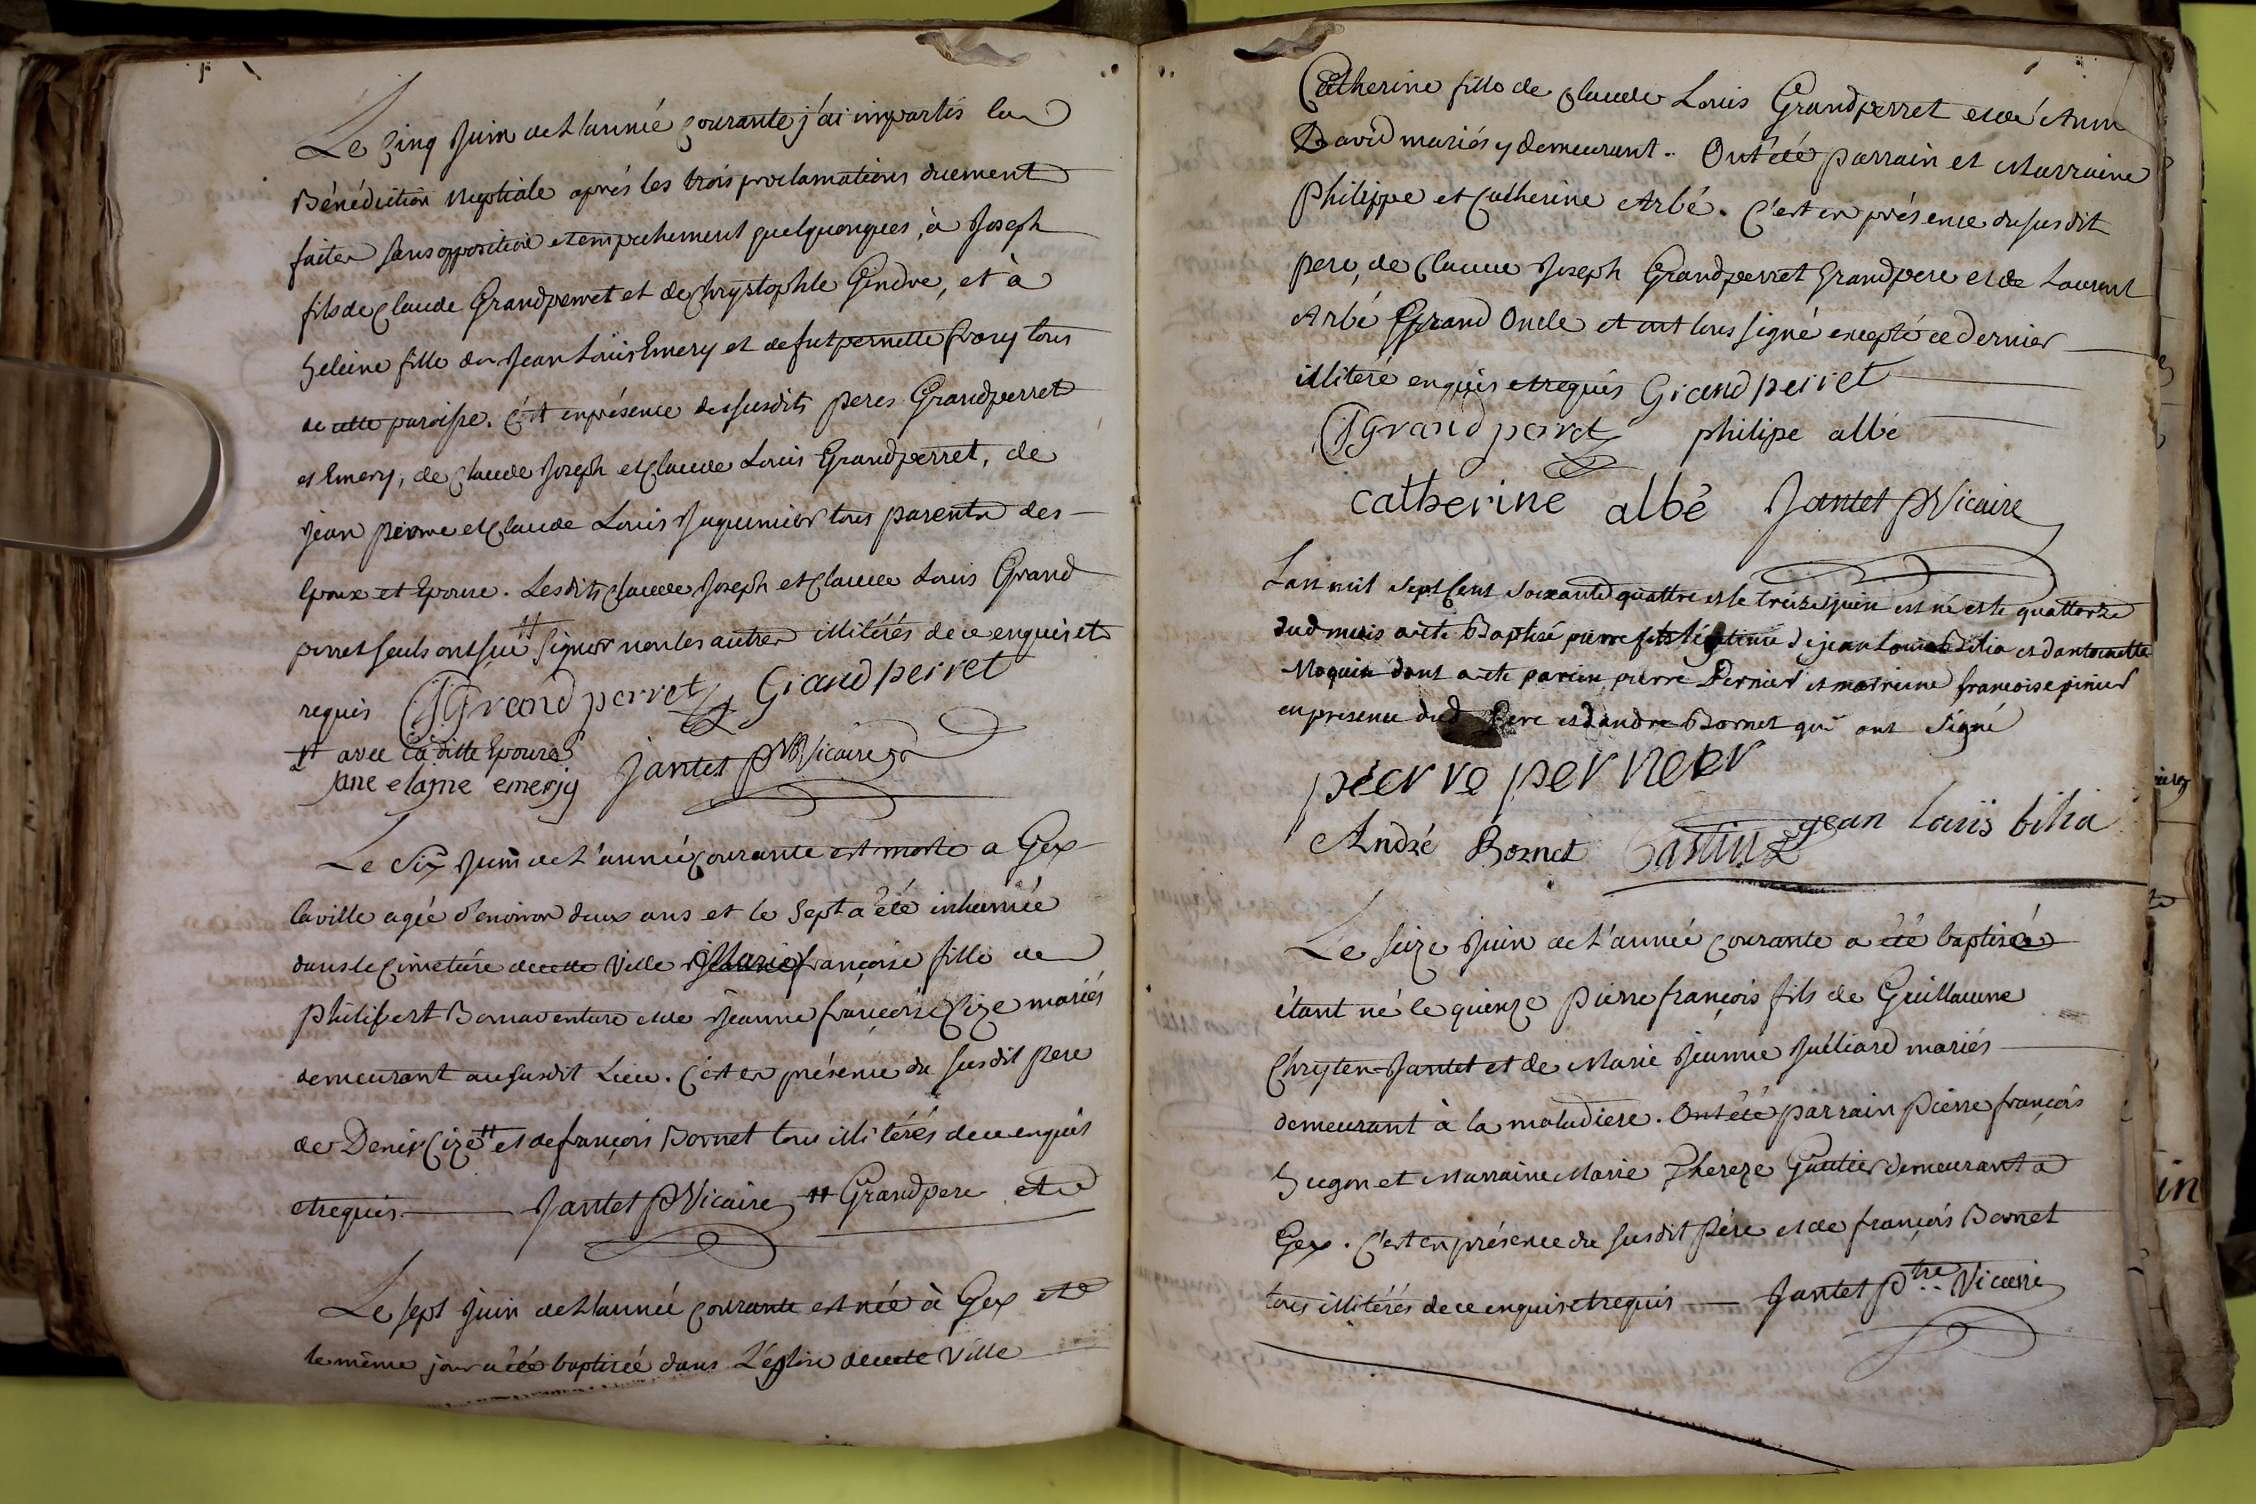 Le Cinq Juin de L'année Courante j'ai impartis la
Bénédiction Nuptiale aprés les trois proclamations duement
faites sans opposition et empechement quelquonques, à Joseph
fils de Claude Grandperret et de Chrystophle Gindre, et à
heleine fille de Jean Loüis Emery et de fut pernette tous
de cette paroisse. C'est en présence des susdits peres Grandperret
et Emery, de Claude Joseph et Claude Louis Grandperret, de
Jean pierre et Claude Louis Juqumier tous parents des
Epoux et Epouse. Lesdits Claude Joseph et Claude Louis Grand
perret seuls ont sçu # Signer non les autres illitérés de ce enquis et
requis CJGrandperret Grandperret
# avec la ditte Epouse
jane elajne emerjy Jantet Ptre Vicaire
Le Six Juin de L'année Courante est morte a Gex
la ville agée d'environ deux ans et le Sept a été inhumée
dans le Cimetiére de cette Ville Marie françoise fille de
philibert Bonnaventure et de Jeanne françoise Cize mariés
demeurant au susdit Lieu. C'est en présence du susdit pere
de Denis Cize # et de françois Bornet tous illitérés de ce enquis
et requis Jantet P Vicaire # Grandpere et
Le sept Juin de L'année Courante est née à Gex et
le même jour a été baptisée dans L'église de cette Ville
Catherine fille de Claude Louis Grandperret et de Anne
David mariés y demeurant. Ont été parrain et Marraine
Philippe et Catherine Arbé. C'est en présence du susdit
pere, de Claude Joseph Grandperret Grandpere et de Laurent
Arbé Grand Oncle et ont tous signé excepté ce dernier
illiteré enquis et requis Grandperret
CJGrandperret philipe albé
catherine albé Jantet P Vicaire
Lan mil Sept Cent Soixante quattre et le treize juin est né et le quattorze
dud mois a été Baptisé pierre fils légitime de jean Louis Bilia et dantoinette
Moquin dont a été parein pierre Pernier et mareine francoise pernier
en presence dud Pere et dandre Bornet qui ont Signé
pierre pernier
André Bornet Castin jean louis bilia
Le seize Juin de L'année Courante a été baptisé
étant né le quinze Pierre françois fils de Guillaume
Chryten Jantet et de Marie Jeanne Juilliard mariés
demeurant à la maladiere. Ont été parrain Pierre françois
hugon et Marraine Marie Thereze Gautier demeurant a
Gex. C'est en présence du susdit Pére et de françois Bornet
tous illitérés de ce enquis et requis Jantet Ptre Vicaire